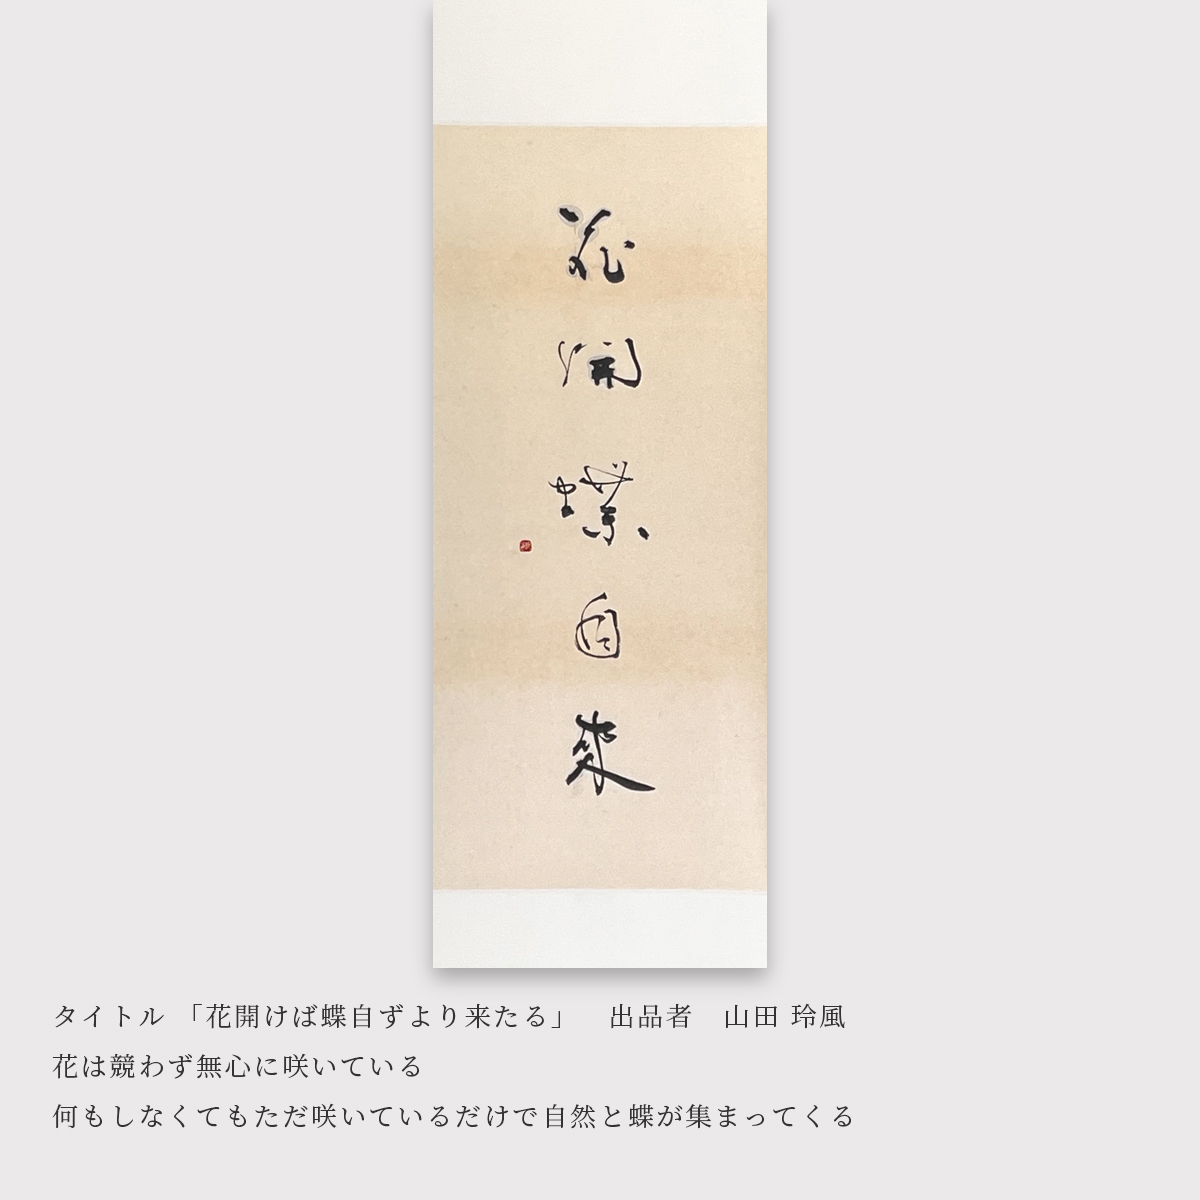 花
開
蝶
自
来
タイトル 「花開けば蝶自ずより来たる」　出品者　山田 玲風
花は競わず無心に咲いている
何もしなくてもただ咲いているだけで自然と蝶が集まってくる